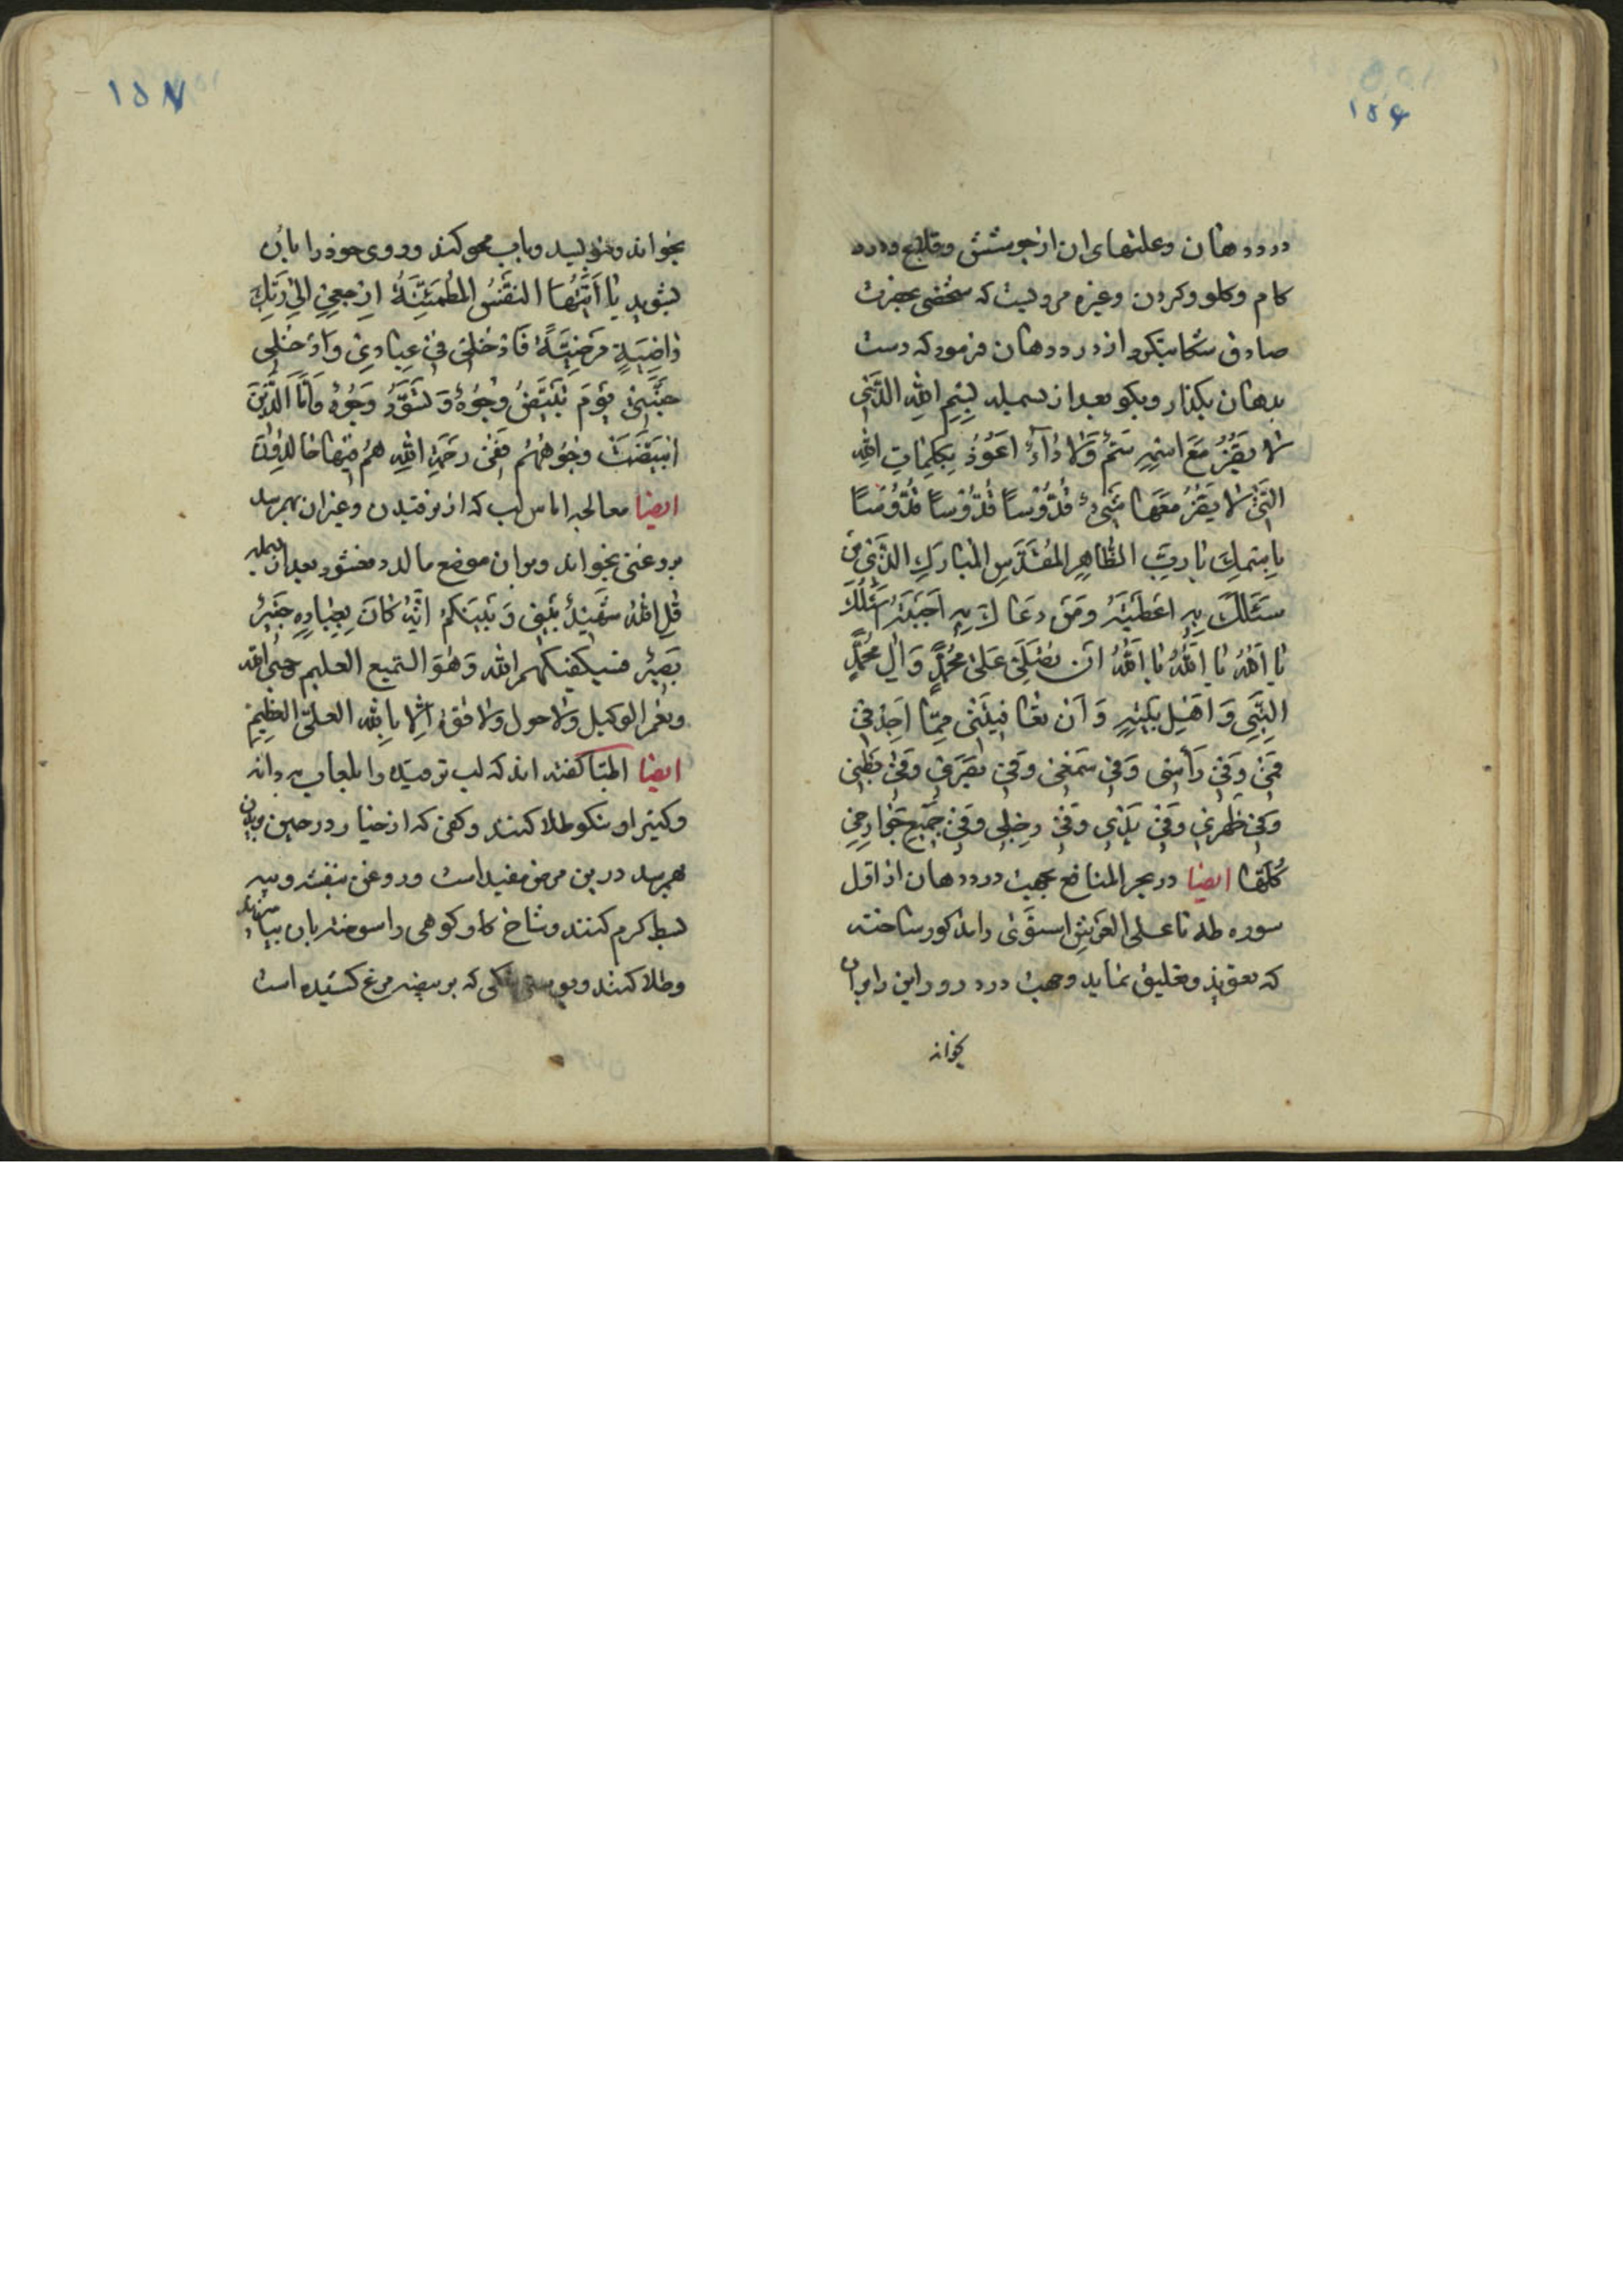 ۱۵۶
درد دهان و علتهای ان از جوشش و قلاع و درد
کام و کلو و کردن و غیره مرویست که شخصی بحضرت
صادق شکایت کرد از درد دهان فرمود که دست
بدهان بکذار و بکو بعد از بسمله بِسْمِ اللهِ الَّذی
لا یَضُرُّ مَعَ اسْمِهِ سَمٌّ وَلا دٰآءٌ اَعُوذُ بِکَلِمٰاتِ اللهِ
الَّتی لا یَضُرُّ مَعَهٰا شَیءٌ قُدُّوْسًا قُدُّوْسًا قُدُّوْسًا
بِاِسْمِکَ یٰا رَبِّ الطّٰاهِرِ المُقَدَّسِ المُبٰارَکِ الَّذی مَن
سَئَلَکَ بِهِ اَعْطَیْتَهُ وَمَن دَعٰاکَ بِهِ اَجَبْتَهُ اَسْئَلُکَ
یٰا اَللهُ یٰا اَللهُ یٰا اَللهُ اَن تُصَلِّیَ عَلیٰ مُحَمَّدٍ وَاٰلِ مُحَمَّدٍ
النَّبِیِّ وَاَهْلِ بَیْتِهِ وَاَن تُعٰافِیَنی مِمّٰا اَجِدُ فی
فَمی وَفی رَأسی وَفی سَمْعی وَفی بَصَری وَفی بَطْنی
وَفی ظَهْری وَفی یَدی وَفی رِجْلی وَفی جَمیعِ جَوٰارِحی
کُلِّهٰا ایضا در بحر المنافع بجهت درد دهان از اول
سوره طه تا علی العَرْشِ اسْتَوٰی را مذکور ساخته
که تعویذ و تعلیق نماید و جهت درد رو این را بران
بخواند
۱۵۷
بخواند و بنویسد و باب محو کند و روی خود را بان
بشوید یٰا اَیَّتُهَا النَّفْسُ المُطْمَئِنَّةُ ارْجِعی اِلیٰ رَبِّکِ
رٰاضِیَةً مَرْضِیَّةً فَادْخُلی فی عِبٰادی وَادْخُلی
جَنَّتی یَوْمَ تَبْیَضُّ وُجُوهٌ وَتَسْوَدُّ وُجُوهٌ وَاَمَّا الَّذینَ
ابْیَضَّتْ وُجُوهُهُمْ فَفی رَحْمَةِ اللهِ هُمْ فیهٰا خٰالِدُونَ
ایضا معالجه اماس لب که از ترقیدن و غیر ان بهمرسد
بروغنی بخواند و بران موضع مالد دفع شود بعد از بسمله
قُلِ اللهُ شَهیدٌ بَیْنی وَبَیْنَکُمْ اِنَّهُ کٰانَ بِعِبٰادِهِ خَبیرٌ
بَصیرٌ فسیکفیکهم الله وَهُوَ السّمیع العلیم حسبی الله
ونعم الوکیل ولا حول ولا قوّة الّا باللهِ العلیِّ العظیمِ
ایضا اطبّا کفته اند که لب ترقیده را بلعاب به دانه
و کتیرا و نیکو طلا کنند و کفی که از خیار در حین بریدن
بهمرسد درین مرض مفید است و روغن بنفشه و پیه
بط کرم کنند و شاخ کاو کوهی را سوخته بان بیامیزند
وطلا کنند و پوست تنکی که بر بیضه مرغ کشیده است